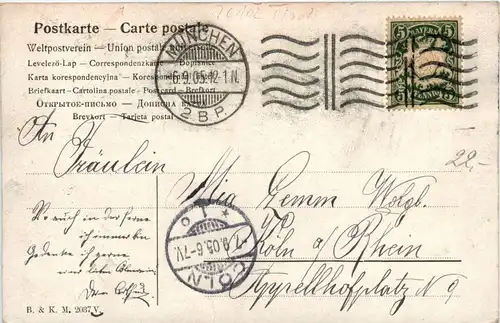 Postkarte – Carte postale
Weltpostverein – Union postale universelle
Levelező-Lap – Correspondenzkarte – Dopisnice
Karta korespondencyjna – Korespondenční
Briefkaart – Cartolina postale – Postcard – Brefkort
Открытое-письмо – Дописна
Brevkort – Tarjeta postal
MÜNCHEN
6.9.05.12-1.N.
2.B.P.
5 BAYERN 5
PFENNIG
An
Fräulein
Mia
22.-
Köln a/Rhein
Appellhofplatz N 9
CÖLN
7.9.05.6-7V
* 1 c
So auch in der Ferne
ich immer
Gedenke ich gerne
B. & K. M. 2037 V.